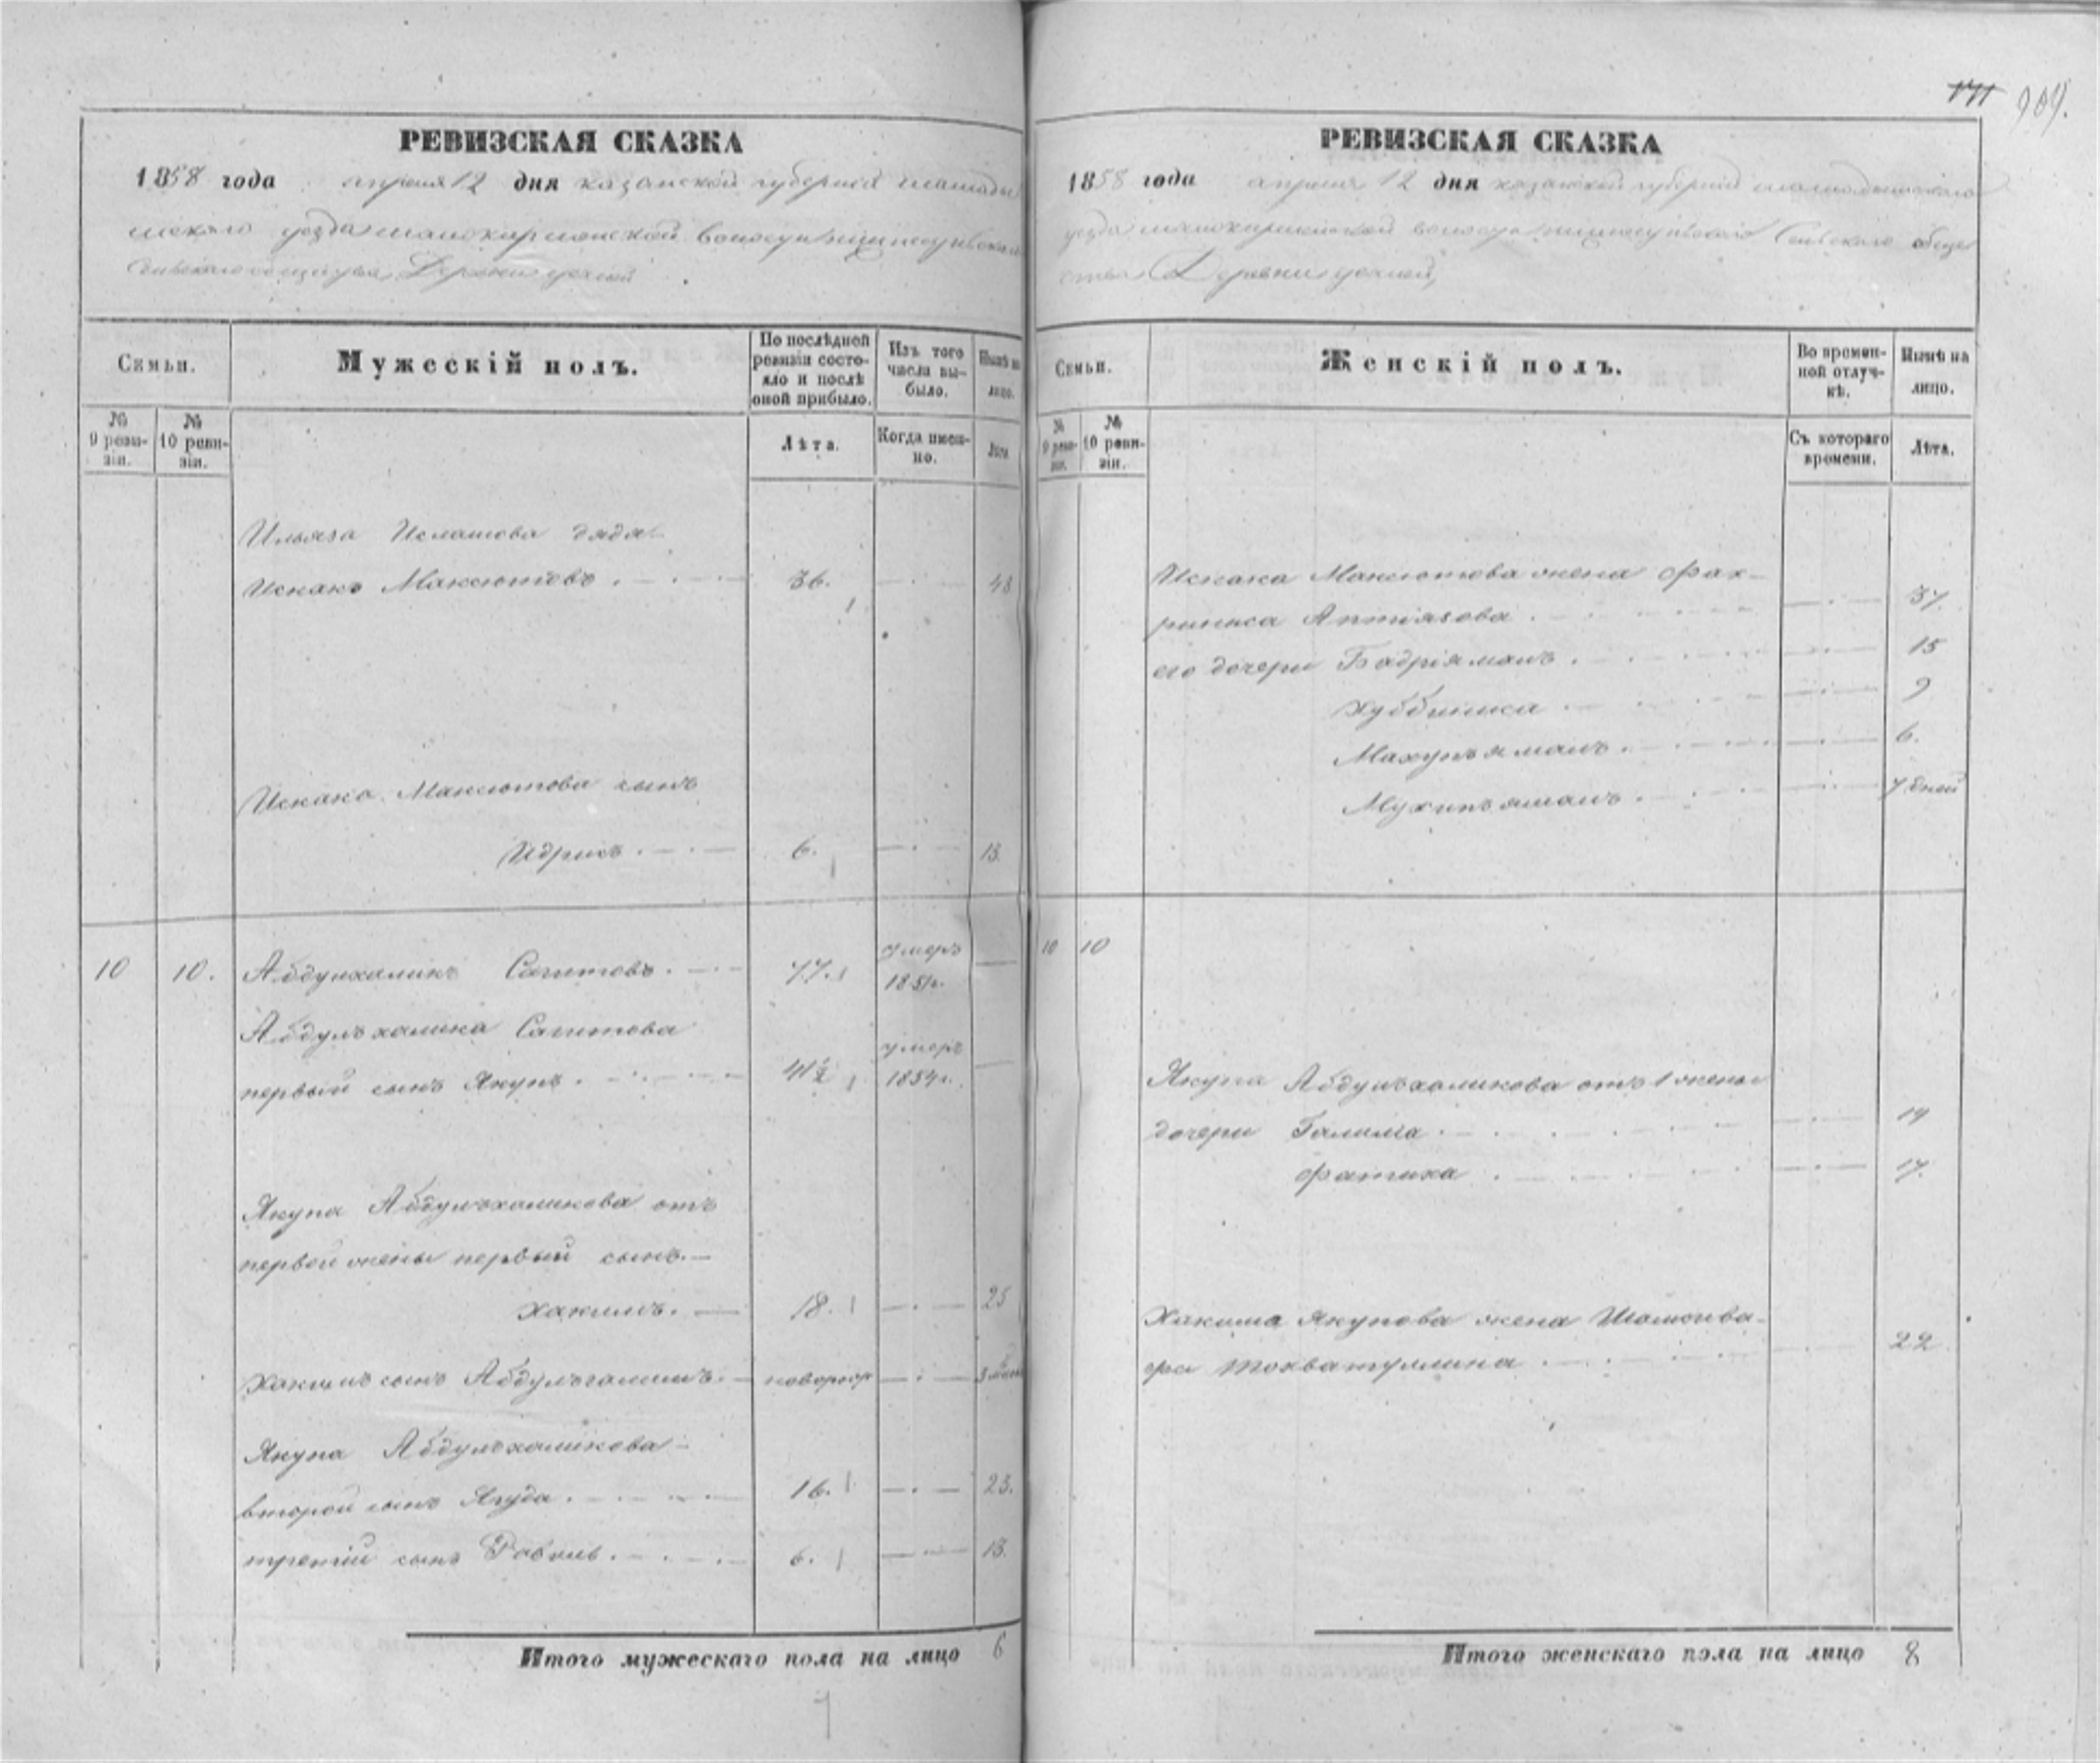 171 904.
РЕВИЗСКАЯ СКАЗКА
1858 года апреля 12 дня казанской губернiи мамады
шскаго уезда
Сельскаго общества Деревни
Семьи.
Мужескiй полъ.
По послѣдней ревизiи состояло и послѣ оной прибыло.
Изъ того числа выбыло.
Нынѣ на лицо.
№ 9 ревизiи.
№ 10 ревизiи.
Лѣта.
Когда именно.
Лѣта.
Ильяза Исламова дядя
Искакъ Максютовъ . 36. 43
Искака Максютова сынъ
Идрисъ . 6. 13.
10 10. Абдулхаликъ Сагитовъ . 77. умеръ 1851 г.
Абдулъхалика Сагитова
первый сынъ Якупъ . 41½ умеръ 1854 г.
Якупа Абдулъхаликова отъ
первой жены первый сынъ. —
Хакимъ. — 18. 25
Хакимъ сынъ Абдулъгалимъ. — новорож 3
Якупа Абдулъхаликова
второй сынъ Ягуда . 16. 23.
третiй сынъ . 6. 13.
Итого мужескаго пола на лицо 6
РЕВИЗСКАЯ СКАЗКА
1858 года апреля 12 дня казанской губернiи мамадышскаго
уезда Сельскаго обще
ства Деревни
Семьи.
Женскiй полъ.
Во временной отлучкѣ.
Нынѣ на лицо.
№ 9 ревизiи.
№ 10 ревизiи.
Съ котораго времени.
Лѣта.
Искака Максютова жена Фах-
риниса Аптиязова . 37.
его дочери Бадрiямалъ . 15
Хуббиниса . 9
Махупъямалъ . 6.
Мухипъямалъ . 7 дней
10 10
Якупа Абдулъхаликова отъ 1 жены
дочери Галима . 19
Фатиха . 17.
Хакима Якупова жена Шамсива-
фа Тохватуллина . 22
Итого женскаго пола на лицо 8